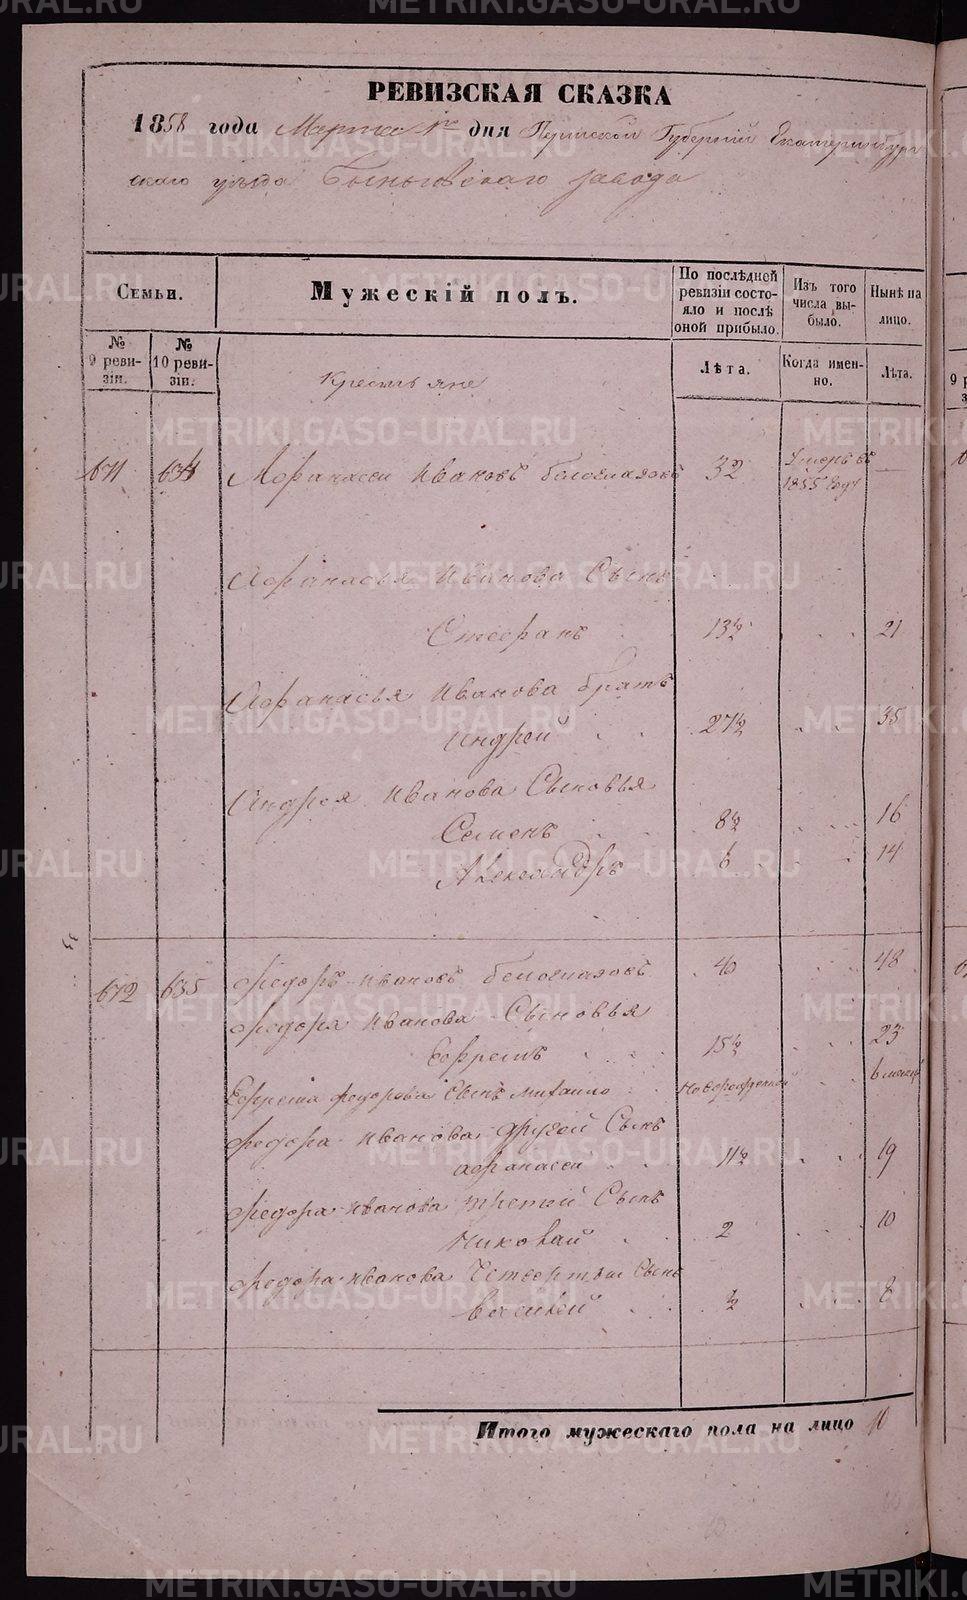 РЕВИЗСКАЯ СКАЗКА
1858 года Марта 1го дня Пермской Губерніи Екатеринбург
скаго уѣзда Быньговскаго завода
Семьи.
Мужескій полъ.
По послѣдней ревизіи состояло и послѣ оной прибыло.
Изъ того числа выбыло.
Нынѣ на лицо.
№ 9 ревизіи.
№ 10 ревизіи.
Крестьяне
Лѣта.
Когда именно.
Лѣта.
671 634 Афанасеи Ивановъ Белоглазовъ 32 Умеръ въ 1855 году —
Афанасья Иванова Сынъ
Стефанъ 13½ 21
Афанасья Иванова братъ
Андрей 27½ 35
Андрея Иванова Сыновья
Семенъ 8½ 16
Александръ 6 14
672 635 Федоръ Ивановъ Белоглазовъ 40 48
Федора Иванова Сыновья
Ефремъ 15½ 23
Ефрема Федорова Сынъ Михаило Новорожденной 6 месяц
Федора Иванова другой Сынъ
Афанасеи 11½ 19
Федора Иванова третий Сынъ
Николай 2 10
Федора Иванова Четвертыи Сынъ
Василей ½ 8
Итого мужескаго пола на лицо 10
METRIKI.GASO-URAL.RU